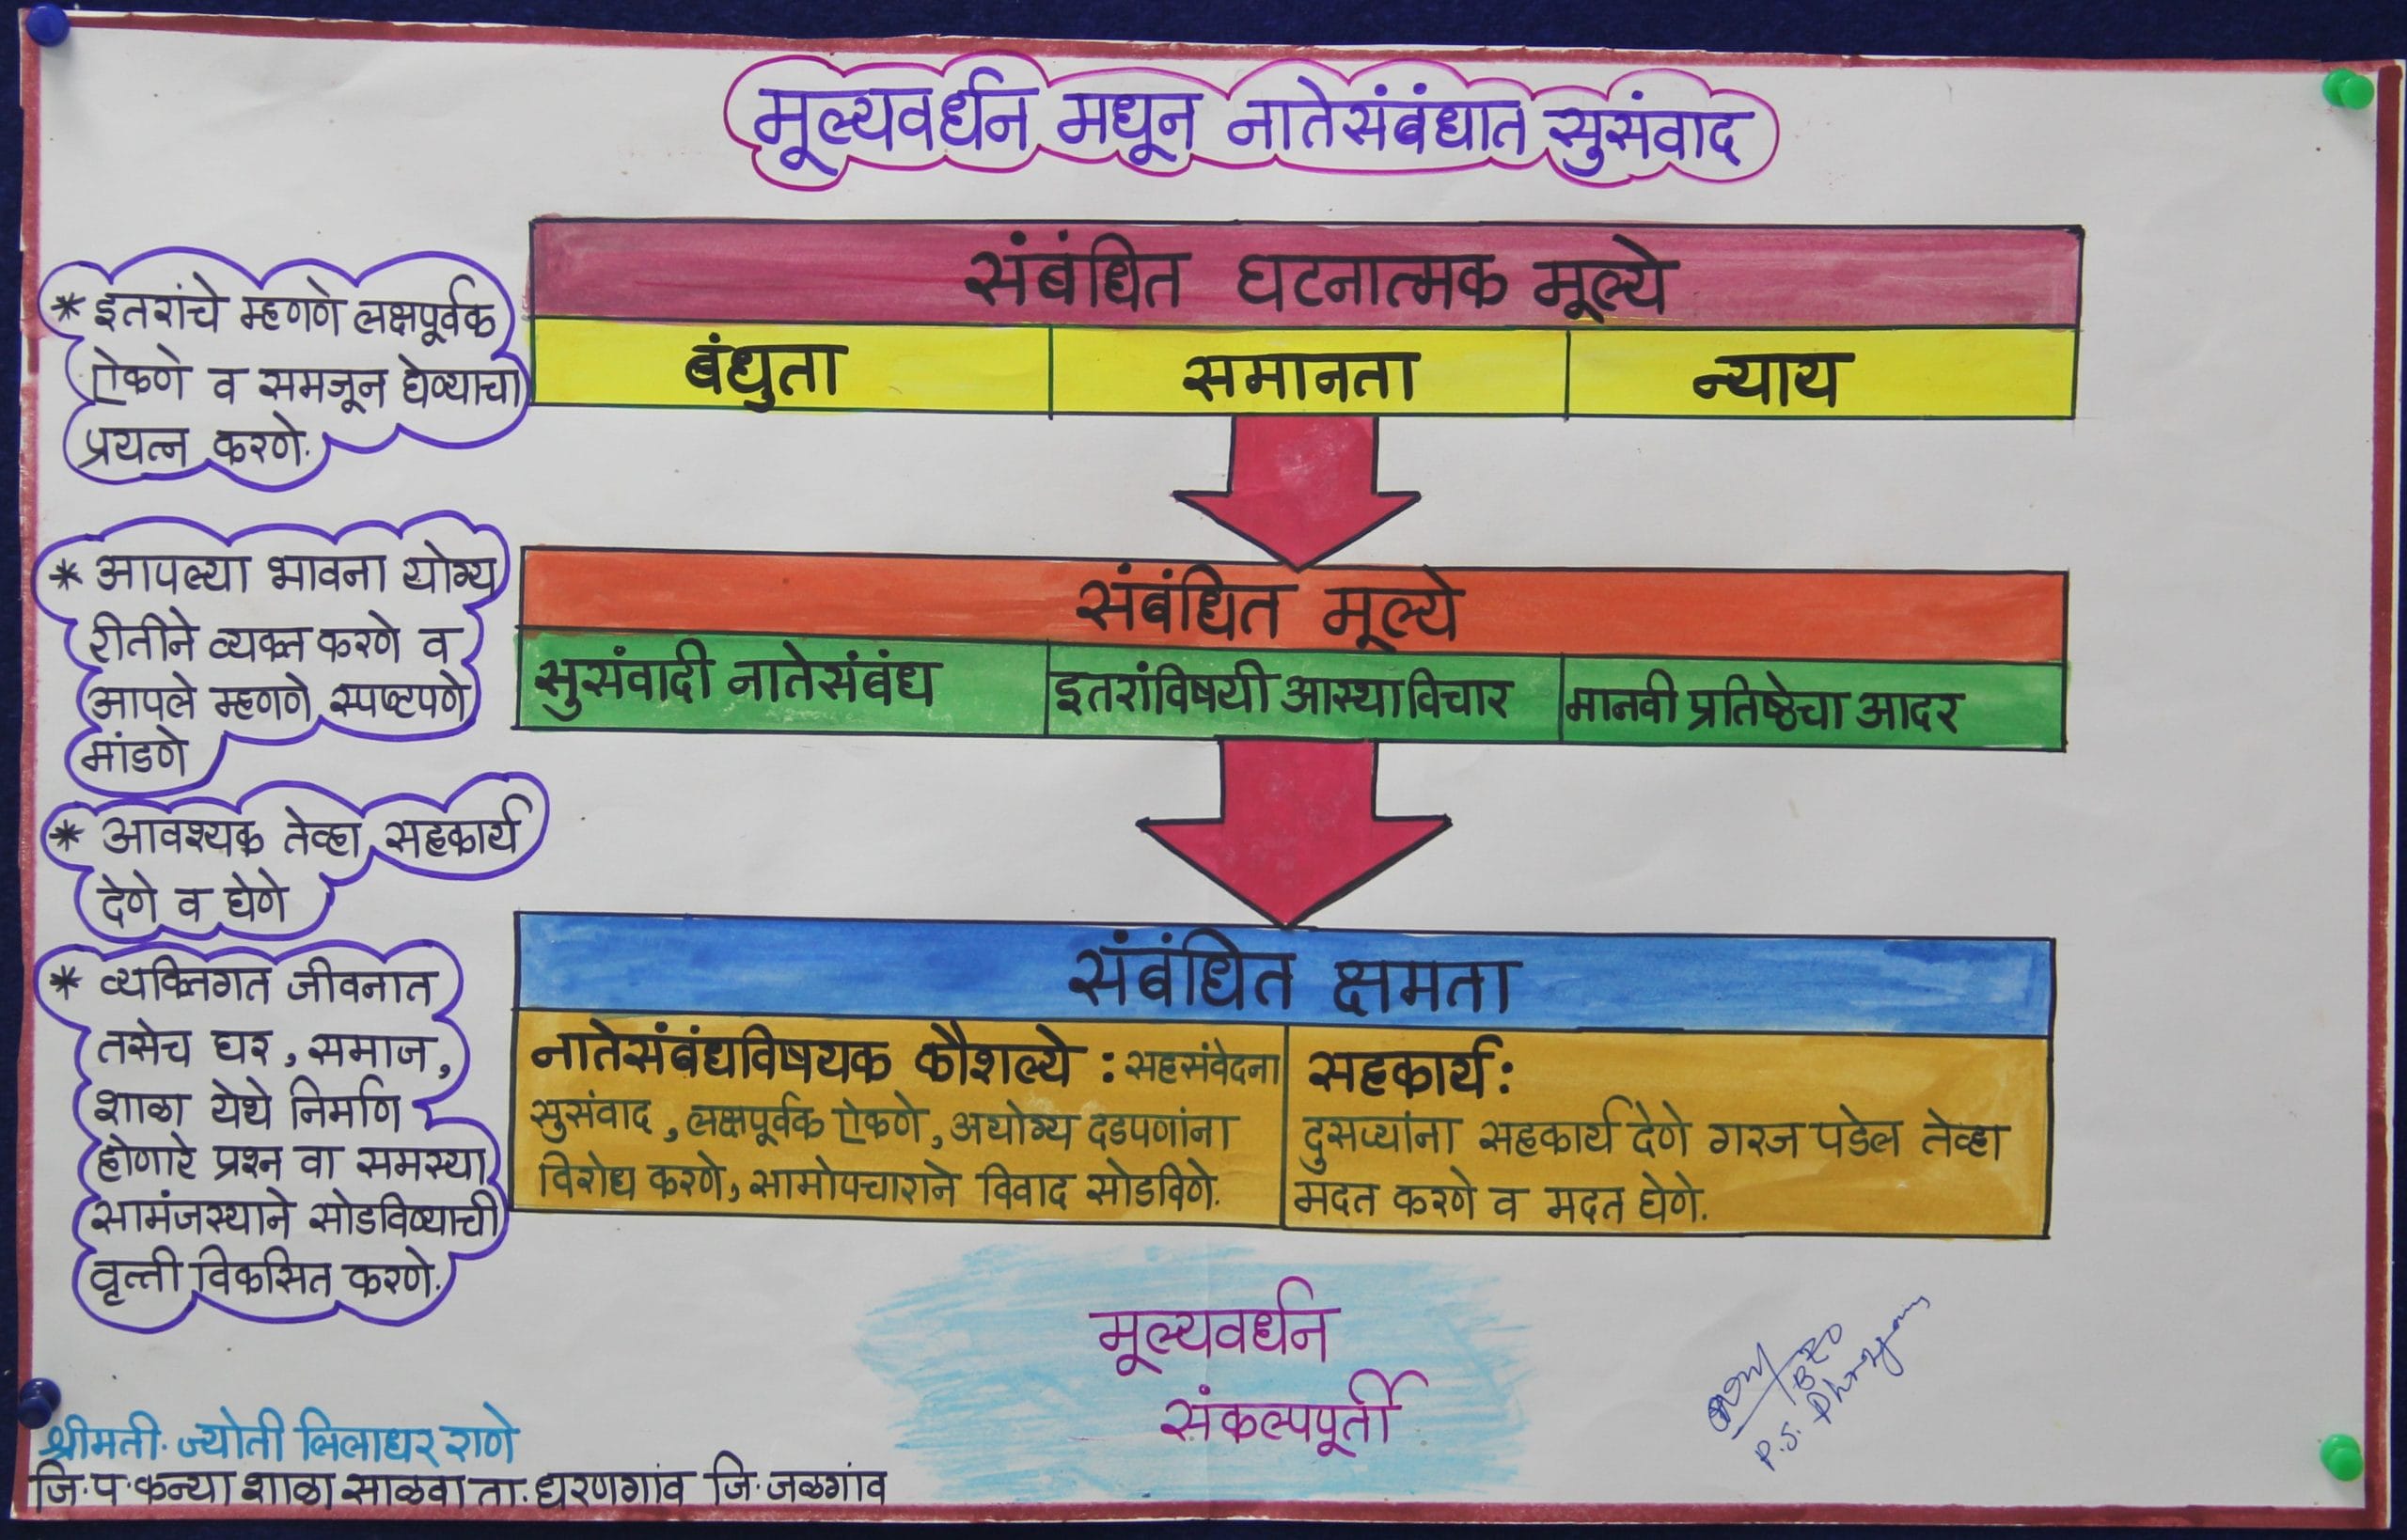 मूल्यवर्धन मधून नातेसंबंधात सुसंवाद
* इतरांचे म्हणणे लक्षपूर्वक
ऐकणे व समजून घेण्याचा
प्रयत्न करणे.
* आपल्या भावना योग्य
रीतीने व्यक्त करणे व
आपले म्हणणे स्पष्टपणे
मांडणे
* आवश्यक तेव्हा सहकार्य
देणे व घेणे
* व्यक्तिगत जीवनात
तसेच घर, समाज,
शाळा येथे निर्माण
होणारे प्रश्न वा समस्या
सामंजस्याने सोडविण्याची
वृत्ती विकसित करणे.
संबंधित घटनात्मक मूल्ये
बंधुता समानता न्याय
संबंधित मूल्ये
सुसंवादी नातेसंबंध इतरांविषयी आस्था विचार मानवी प्रतिष्ठेचा आदर
संबंधित क्षमता
नातेसंबंधविषयक कौशल्ये : सहसंवेदना
सुसंवाद, लक्षपूर्वक ऐकणे, अयोग्य दडपणांना
विरोध करणे, सामोपचाराने विवाद सोडविणे.
सहकार्य:
दुसऱ्यांना सहकार्य देणे गरज पडेल तेव्हा
मदत करणे व मदत घेणे.
मूल्यवर्धन
संकल्पपूर्ती
श्रीमती. ज्योती लिलाधर राणे
जि.प.कन्या शाळा साळवा ता. धरणगांव जि. जळगांव
BEO
P.S.